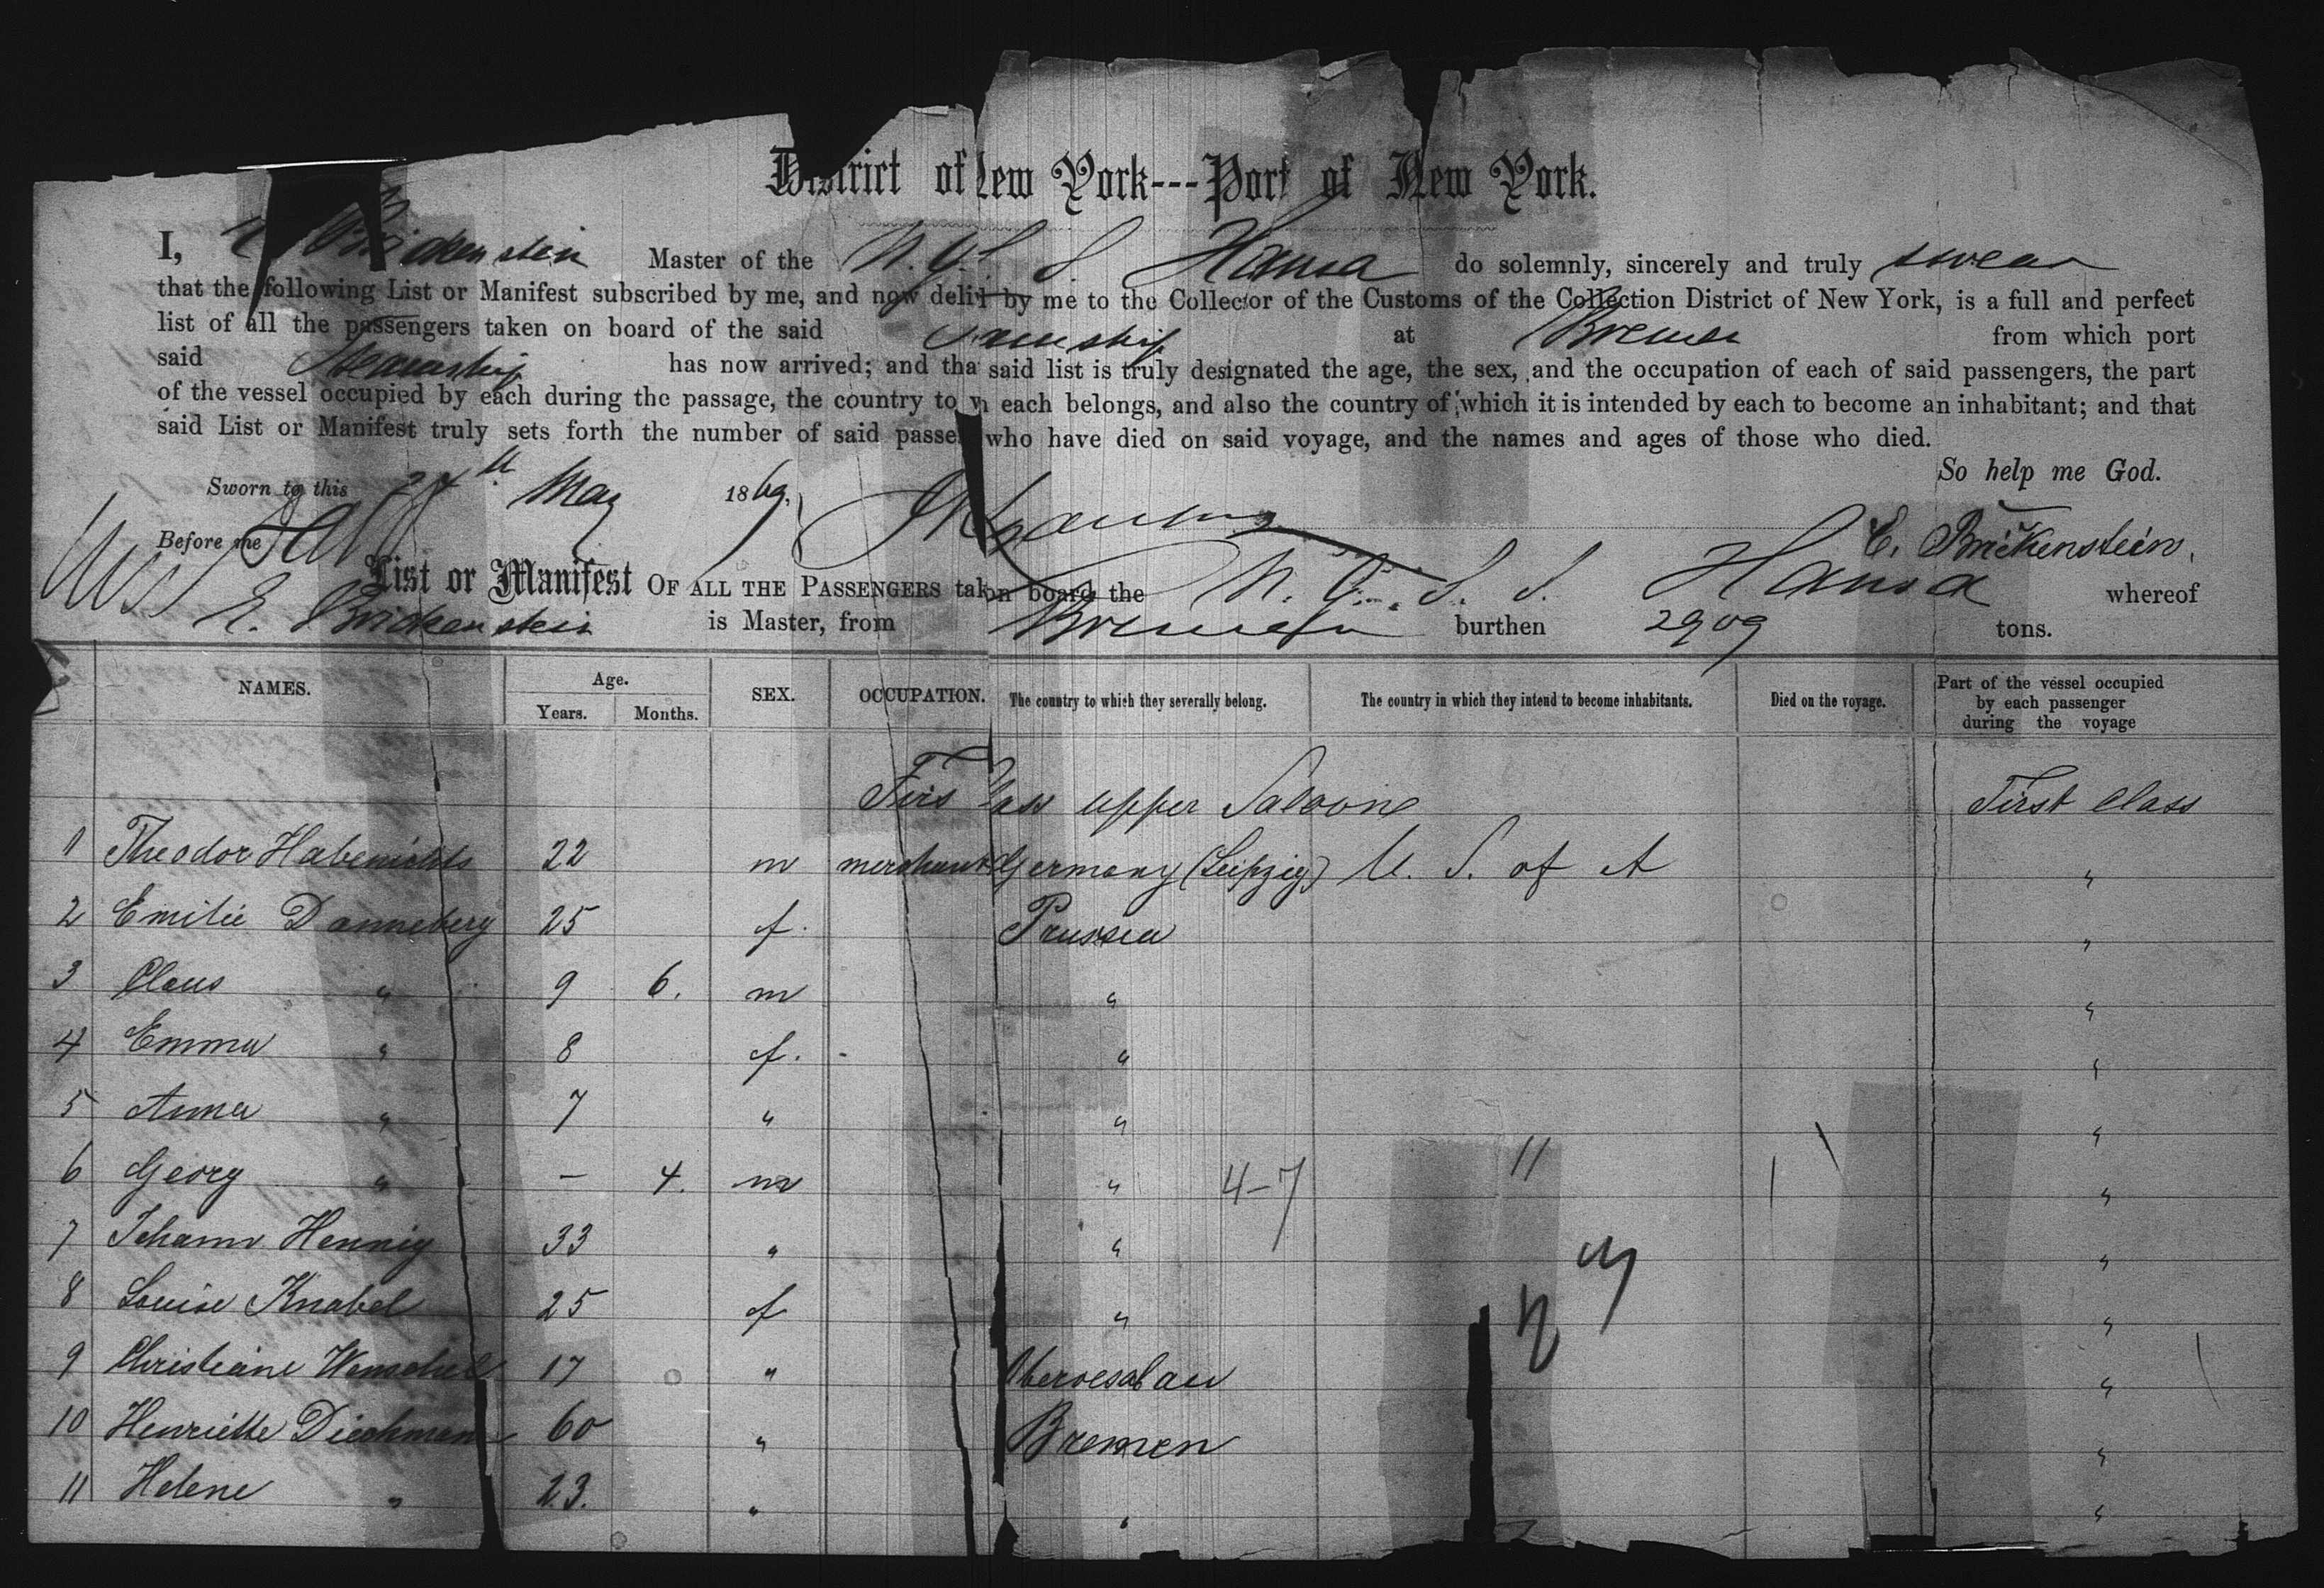 District of New York---Port of New York.
I, E. Brickenstein Master of the N. G. S. S. Hansa do solemnly, sincerely and truly swear
that the following List or Manifest subscribed by me, and now deli'd by me to the Collector of the Customs of the Collection District of New York, is a full and perfect
list of all the passengers taken on board of the said Steamship at Bremen from which port
said Steamship has now arrived; and tha said list is truly designated the age, the sex, and the occupation of each of said passengers, the part
of the vessel occupied by each during the passage, the country to w each belongs, and also the country of which it is intended by each to become an inhabitant; and that
said List or Manifest truly sets forth the number of said passe who have died on said voyage, and the names and ages of those who died.
So help me God.
Sworn to this 24th May 1869.
Before me
E. Brickenstein,
List or Manifest OF ALL THE PASSENGERS taken on board the N. G. S. S. Hansa whereof
E. Brickenstein is Master, from Bremen burthen 2909 tons.
NAMES. Age. Years. Months. SEX. OCCUPATION. The country to which they severally belong. The country in which they intend to become inhabitants. Died on the voyage. Part of the vessel occupied by each passenger during the voyage
Firs Class upper Saloone First Class
1 Theodor Habenichts 22 m merchant Germany (Leipzig) U. S. of A "
2 Emilie Danneberg 25 f. Prussia "
3 Claus " 9 6. m " "
4 Emma " 8 f. " "
5 Anna " 7 " " "
6 Georg " - 4. m " 4-7 11 "
7 Johann Hennig 33 " " "
8 Louise Knabel 25 f " "
9 Christiane 17 " "
10 Henriette Dieckmann 60 " Bremen "
11 Helene " 23. " " "